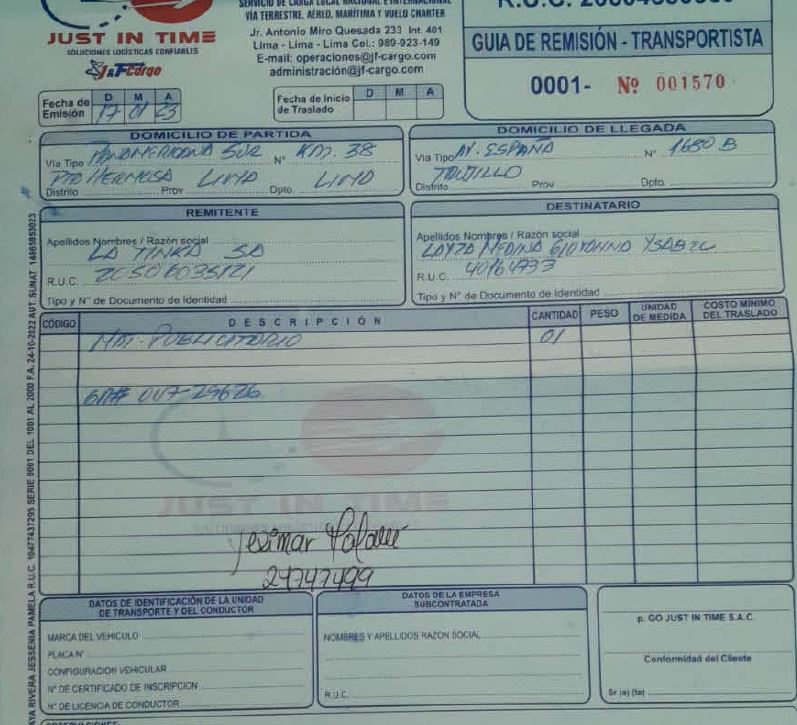 JUST IN TIME
SOLUCIONES LOGÍSTICAS CONFIABLES
J&F Cargo
SERVICIO DE CARGA LOCAL NACIONAL E INTERNACIONAL
VÍA TERRESTRE, AÉREO, MARÍTIMA Y VUELO CHARTER
Jr. Antonio Miro Quesada 233 Int. 401
Lima - Lima - Lima Cel.: 989-923-149
E-mail: operaciones@jf-cargo.com
administración@jf-cargo.com
GUIA DE REMISIÓN - TRANSPORTISTA
0001- Nº 001570
Fecha de Emisión D M A
17 01 23
Fecha de Inicio de Traslado D M A
DOMICILIO DE PARTIDA
Vía Tipo PANAMERICANA SUR Nº KM. 38
PTA HERMOSA LIMA LIMA
Distrito Prov Dpto.
DOMICILIO DE LLEGADA
Vía Tipo AV. ESPAÑA Nº 1680 B
TRUJILLO
Distrito Prov Dpto.
REMITENTE
Apellidos Nombres / Razón social
LA TINKA SA
R.U.C. 20506035121
Tipo y Nº de Documento de Identidad
DESTINATARIO
Apellidos Nombres / Razón social
LAYZA MEDINA GIOVANNA YSABEL
R.U.C. 40964733
Tipo y Nº de Documento de Identidad
CÓDIGO DESCRIPCIÓN CANTIDAD PESO UNIDAD DE MEDIDA COSTO MÍNIMO DEL TRASLADO
MAT. PUBLICITARIO 01
GR# 047-29626
JUST IN TIME
Jesimar
24747499
DATOS DE IDENTIFICACIÓN DE LA UNIDAD DE TRANSPORTE Y DEL CONDUCTOR
MARCA DEL VEHICULO
PLACA Nº
CONFIGURACION VEHICULAR
Nº DE CERTIFICADO DE INSCRIPCION
Nº DE LICENCIA DE CONDUCTOR
DATOS DE LA EMPRESA SUBCONTRATADA
NOMBRES Y APELLIDOS RAZON SOCIAL
R.U.C.
p. GO JUST IN TIME S.A.C.
Conformidad del Cliente
Sr (a) (ta)
OBSERVACIONES
AYA RIVERA JESSENIA PAMELA R.U.C. 10477437295 SERIE 0001 DEL 1001 AL 2000 F.A. 24-10-2022 AUT. SUNAT. 14865853023